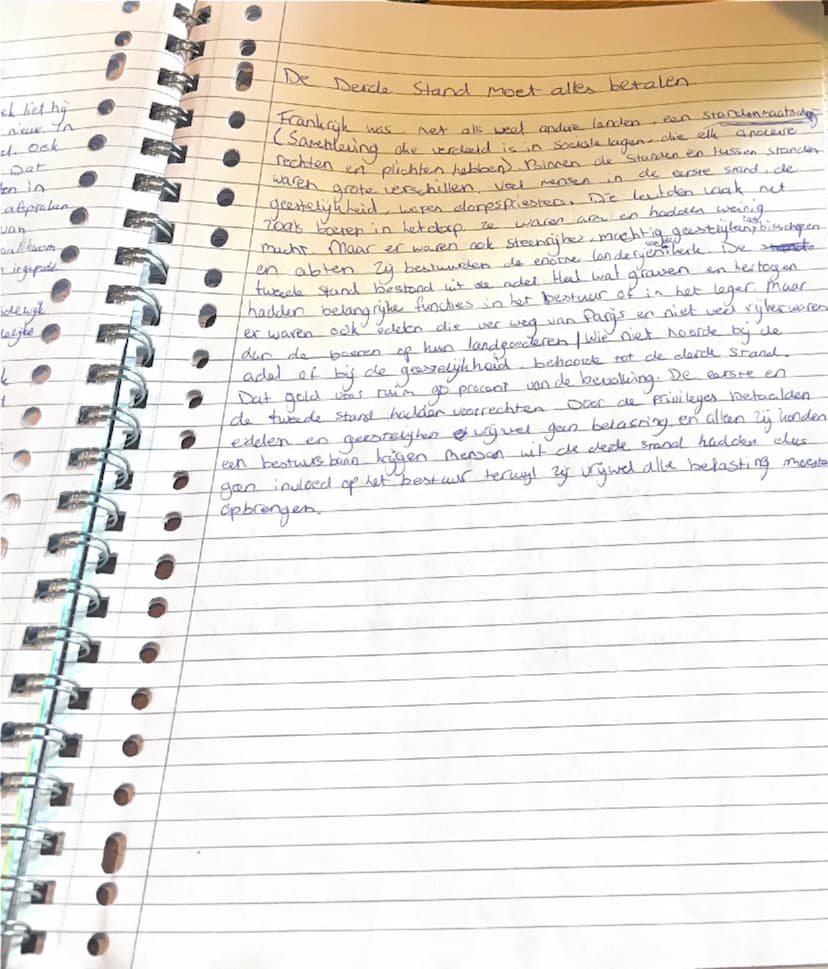 De Derde Stand Moet alles betalen
Frankrijk was, net als veel andere landen, een standenmaatschappij
(Samenleving die verdeeld is in sociale lagen, die elk andere
rechten en plichten hebben). Binnen de standen en tussen standen
waren grote verschillen. Veel mensen in de eerste stand, de
geestelijkheid, waren dorpspriesters. Die leefden vaak net
zoals boeren in het dorp. Ze waren arm en hadden weinig
macht. Maar er waren ook steenrijke, machtig geestelijken, bisschopen
en abten. Zij bestuurden de enorme landerijen kerk. De
tweede stand bestond uit de adel. Heel wat graven en hertogen
hadden belangrijke functies in het bestuur of in het leger. Maar
er waren ook edelen die ver weg van Parijs en niet veel rijker waren
dan de boeren op hun landgoederen / Wie niet hoorde bij de
adel of bij de geestelijkheid, behoorde tot de derde stand.
Dat gold voor ruim 90 procent van de bevolking. De eerste en
de tweede stand hadden voorrechten. Door de privileges betaalden
edelen en geestelijken vrijwel geen belasting en alleen zij konden
een bestuurs baan krijgen. Mensen uit de derde stand hadden dus
geen invloed op het bestuur terwijl zij vrijwel alle belasting moesten
opbrengen.
sk liet hij
nieuw In
d. ook
Dat
en in
afspraken
van